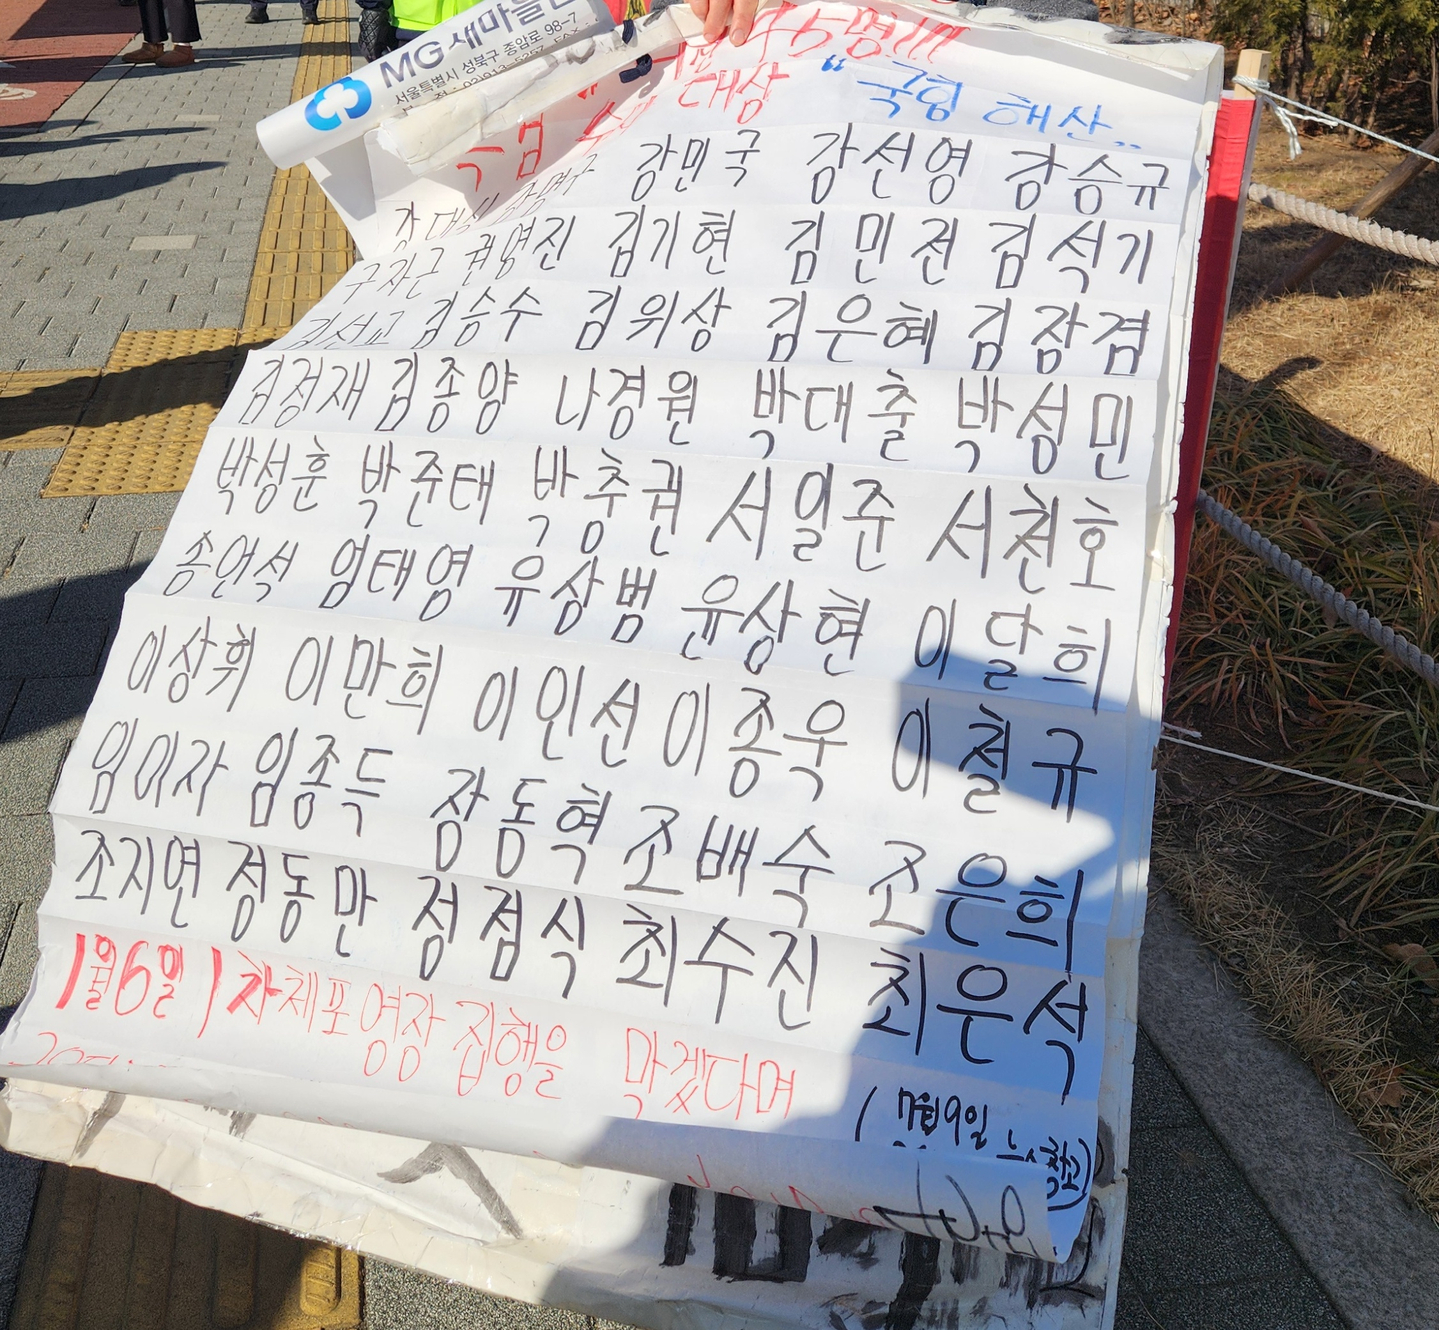 MG새마을
서울특별시 성북구 종암로 98-7
45명!!!
특검 수사 대상 "국힘 해산"
강대식 강명구 강민국 강선영 강승규
구자근 권영진 김기현 김민전 김석기
김선교 김승수 김위상 김은혜 김장겸
김정재 김종양 나경원 박대출 박성민
박성훈 박준태 박충권 서일준 서천호
송언석 엄태영 유상범 윤상현 이달희
이상휘 이만희 이인선 이종욱 이철규
임이자 임종득 장동혁 조배숙 조은희
조지연 정동만 정점식 최수진 최은석
1월6일 1차체포영장 집행을 막겠다며
(7월9일